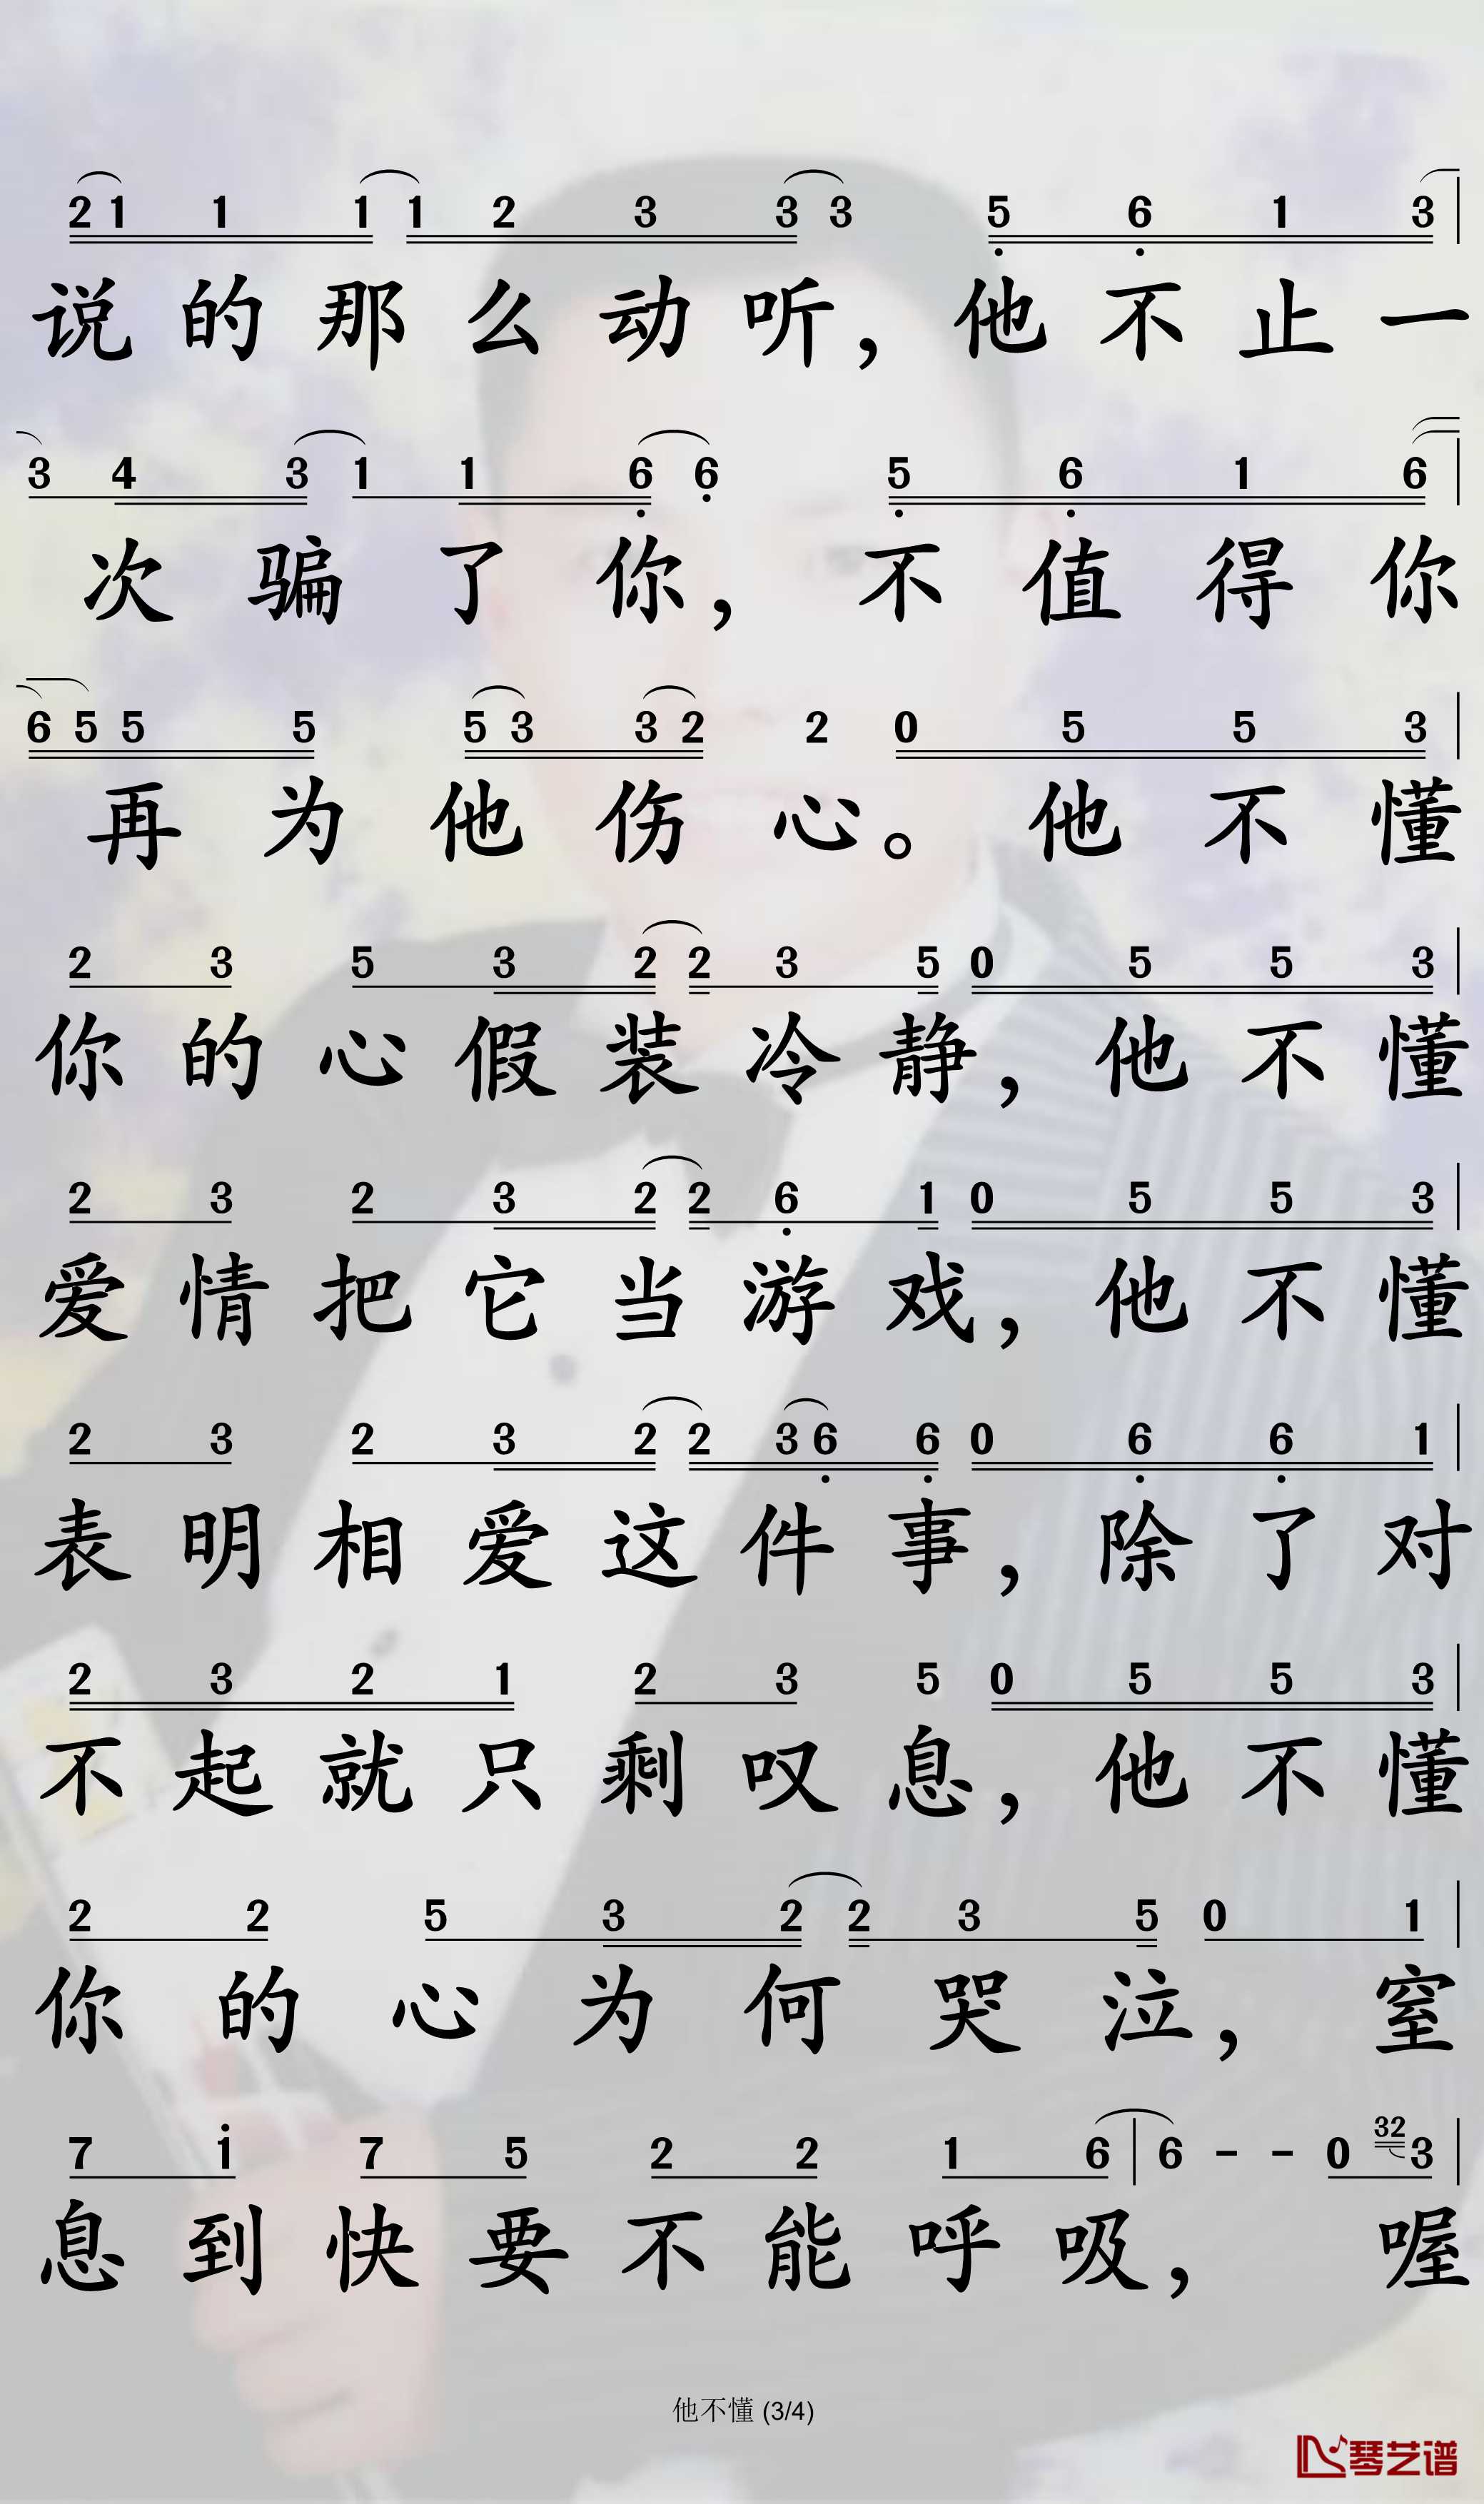 2 1 1 1 1 2 3 3 3 5 6 1 3
说的那么动听，他不止一
3 4 3 1 1 6 6 5 6 1 6
次骗了你，不值得你
6 5 5 5 5 3 3 2 2 0 5 5 3
再为他伤心。他不懂
2 3 5 3 2 2 3 5 0 5 5 3
你的心假装冷静，他不懂
2 3 2 3 2 2 6 1 0 5 5 3
爱情把它当游戏，他不懂
2 3 2 3 2 2 3 6 6 0 6 6 1
表明相爱这件事，除了对
2 3 2 1 2 3 5 0 5 5 3
不起就只剩叹息，他不懂
2 2 5 3 2 2 3 5 0 1
你的心为何哭泣，窒
7 i 7 5 2 2 1 6 | 6 - - 0 32 3
息到快要不能呼吸，喔
他不懂 (3/4)
琴艺谱